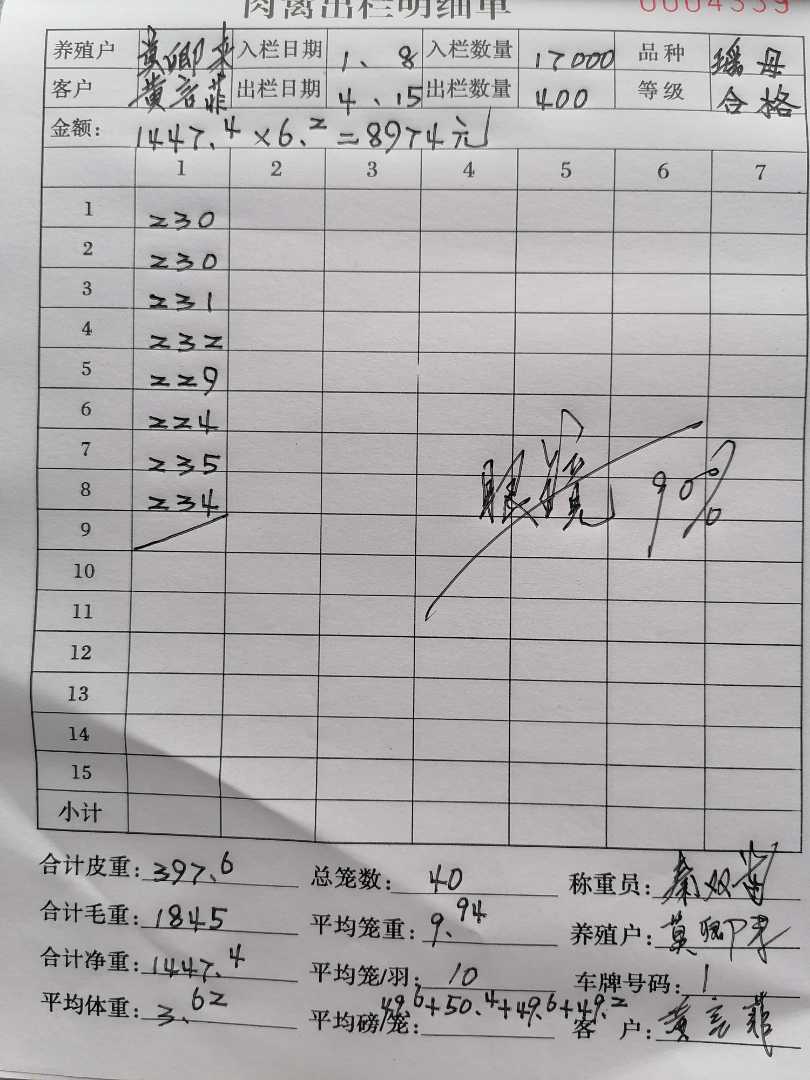 肉禽出栏明细单 0004339
养殖户 黄卿来 入栏日期 1、8 入栏数量 17000 品种 瑶母
客户 黄言菲 出栏日期 4、15 出栏数量 400 等级 合格
金额: 1447.4×6.2=8974元
1 2 3 4 5 6 7
1 230
2 230
3 231
4 232
5 229
6 224
7 235
8 234
9
10
11
12
13
14
15
眼镜 90%
小计
合计皮重: 397.6 总笼数: 40 称重员: 秦双
合计毛重: 1845 平均笼重: 9.94 养殖户: 黄卿来
合计净重: 1447.4 平均笼/羽: 10 车牌号码: 1
平均体重: 3.62 平均磅/笼: 49.6+50.4+49.6+49.2 客户: 黄言菲